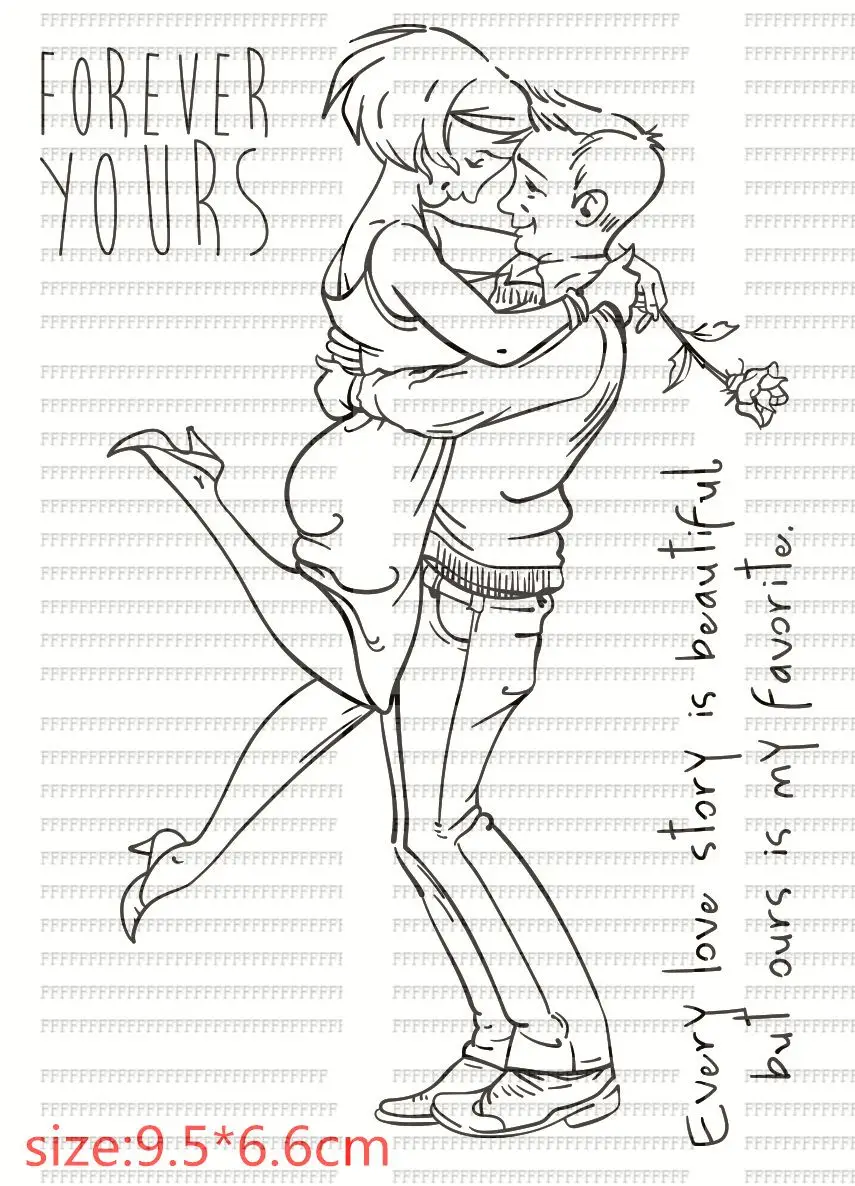 FOREVER
YOURS
Every love story is beautiful
but ours is my favorite.
size:9.5*6.6cm